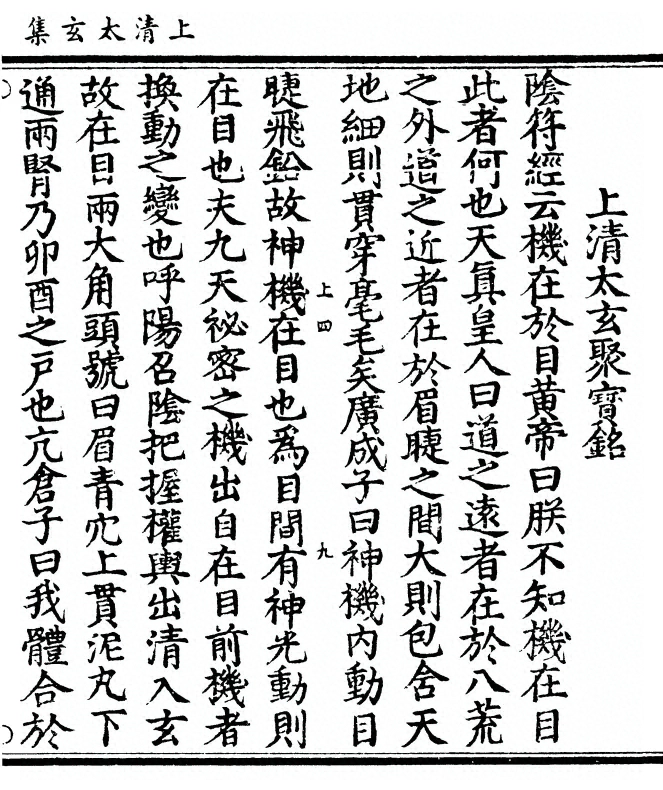 上清太玄集
上清太玄聚寶銘
陰符經云機在於目黄帝曰朕不知機在目
此者何也天眞皇人曰道之遠者在於八荒
之外道之近者在於眉睫之間大則包含天
地細則貫穿毫毛矣廣成子曰神機内動目
上四 九
睫飛鈆故神機在目也爲目間有神光動則
在目也夫九天祕密之機出自在目前機者
換動之變也呼陽召陰把握權輿出清入玄
故在目兩大角頭號曰眉青穴上貫泥丸下
通兩腎乃卯酉之戸也亢倉子曰我體合於